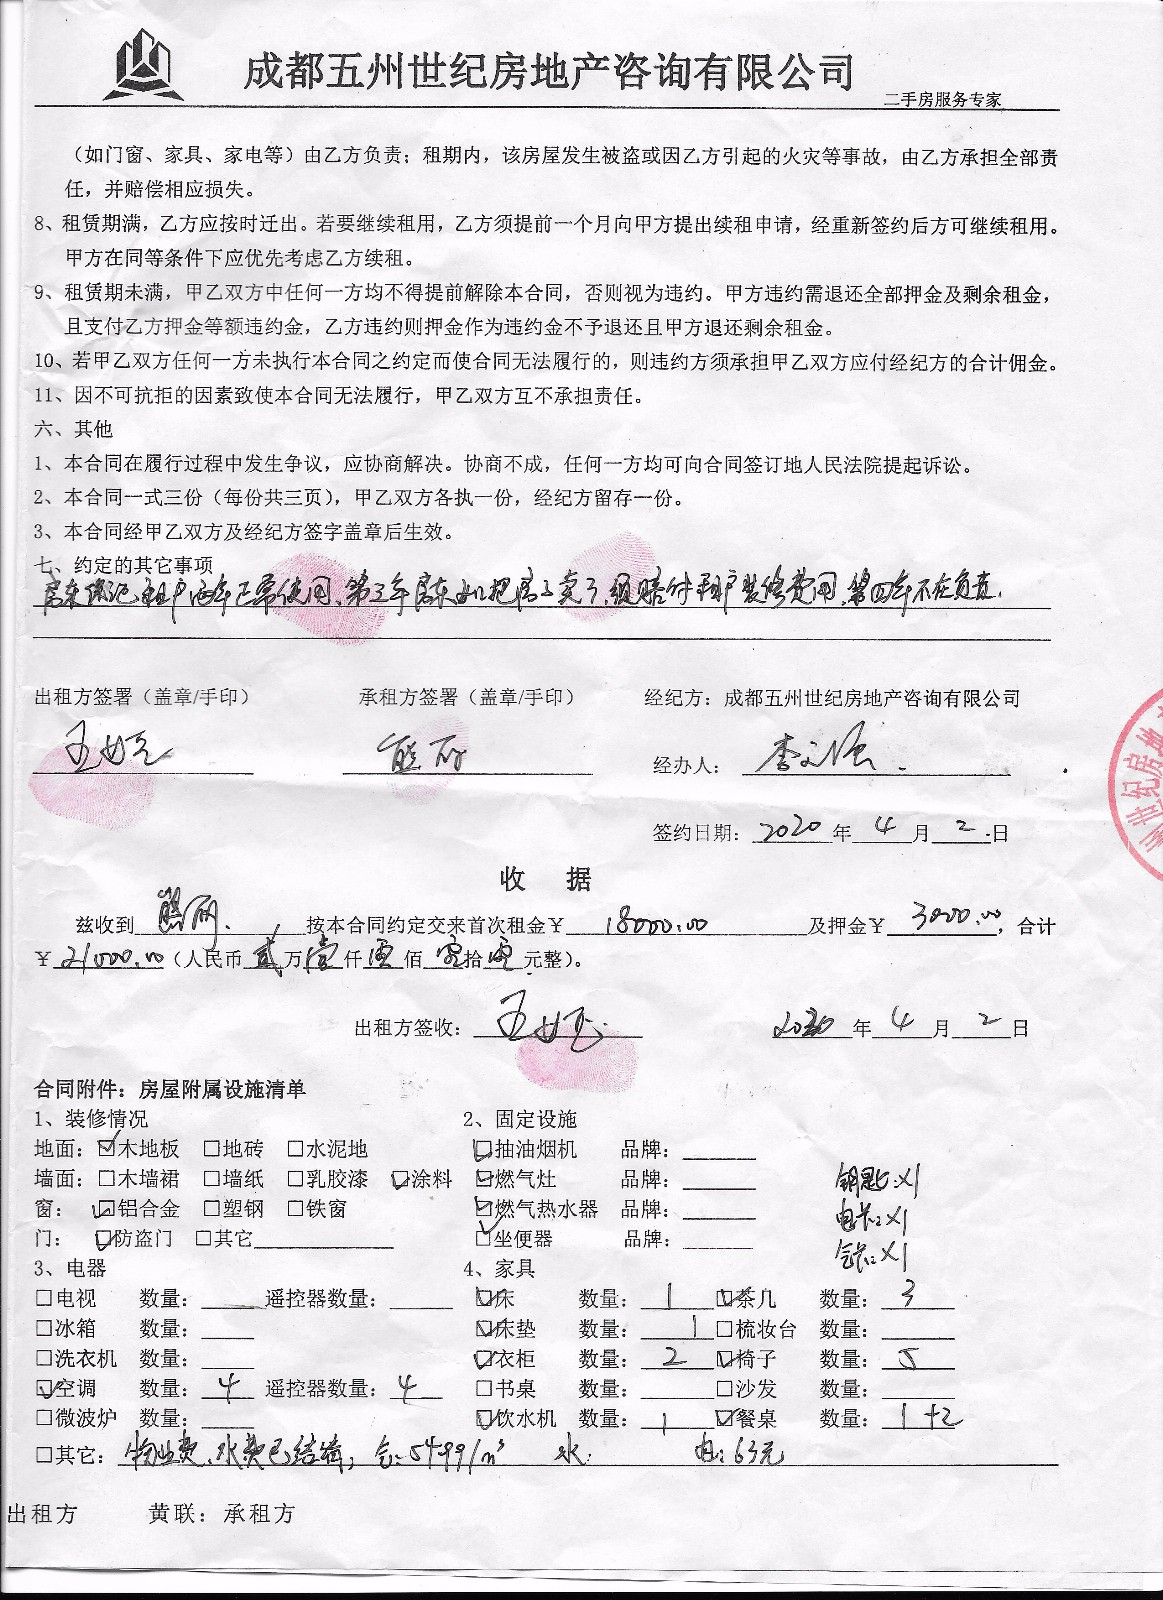 成都五州世纪房地产咨询有限公司
二手房服务专家
（如门窗、家具、家电等）由乙方负责；租期内，该房屋发生被盗或因乙方引起的火灾等事故，由乙方承担全部责
任，并赔偿相应损失。
8、租赁期满，乙方应按时迁出。若要继续租用，乙方须提前一个月向甲方提出续租申请，经重新签约后方可继续租用。
甲方在同等条件下应优先考虑乙方续租。
9、租赁期未满，甲乙双方中任何一方均不得提前解除本合同，否则视为违约。甲方违约需退还全部押金及剩余租金，
且支付乙方押金等额违约金，乙方违约则押金作为违约金不予退还且甲方退还剩余租金。
10、若甲乙双方任何一方未执行本合同之约定而使合同无法履行的，则违约方须承担甲乙双方应付经纪方的合计佣金。
11、因不可抗拒的因素致使本合同无法履行，甲乙双方互不承担责任。
六、其他
1、本合同在履行过程中发生争议，应协商解决。协商不成，任何一方均可向合同签订地人民法院提起诉讼。
2、本合同一式三份（每份共三页），甲乙双方各执一份，经纪方留存一份。
3、本合同经甲乙双方及经纪方签字盖章后生效。
七、约定的其它事项
房东保证租户两年正常使用、第三年房东如把房子卖了,须赔付租户装修费用、第四年不在负责.
出租方签署（盖章/手印） 承租方签署（盖章/手印） 经纪方：成都五州世纪房地产咨询有限公司
熊丽 经办人：
签约日期：2020年4月2日
世纪房地
收 据
兹收到 熊丽. ，按本合同约定交来首次租金￥ 18000.00 及押金￥ 3000.00，合计
￥21000.00（人民币贰万壹仟零佰零拾零元整）。
出租方签收： 2020年4月2日
合同附件：房屋附属设施清单
1、装修情况 2、固定设施
地面：☑木地板 □地砖 □水泥地 ☑抽油烟机 品牌：
墙面：□木墙裙 □墙纸 □乳胶漆 ☑涂料 ☑燃气灶 品牌： 钥匙:×1
窗： ☑铝合金 □塑钢 □铁窗 ☑燃气热水器 品牌： 电卡:×1
门： ☑防盗门 □其它 ☑坐便器 品牌： 气卡:×1
3、电器 4、家具
□电视 数量： 遥控器数量： ☑床 数量：1 ☑茶几 数量：3
□冰箱 数量： ☑床垫 数量：1 □梳妆台 数量：
□洗衣机 数量： ☑衣柜 数量：2 ☑椅子 数量：5
☑空调 数量：4 遥控器数量：4 □书桌 数量： □沙发 数量：
□微波炉 数量： ☑饮水机 数量：1 ☑餐桌 数量：1+2
□其它：物业费、水费已结清; 气:5499/m³ 水: 电:63元
出租方 黄联：承租方